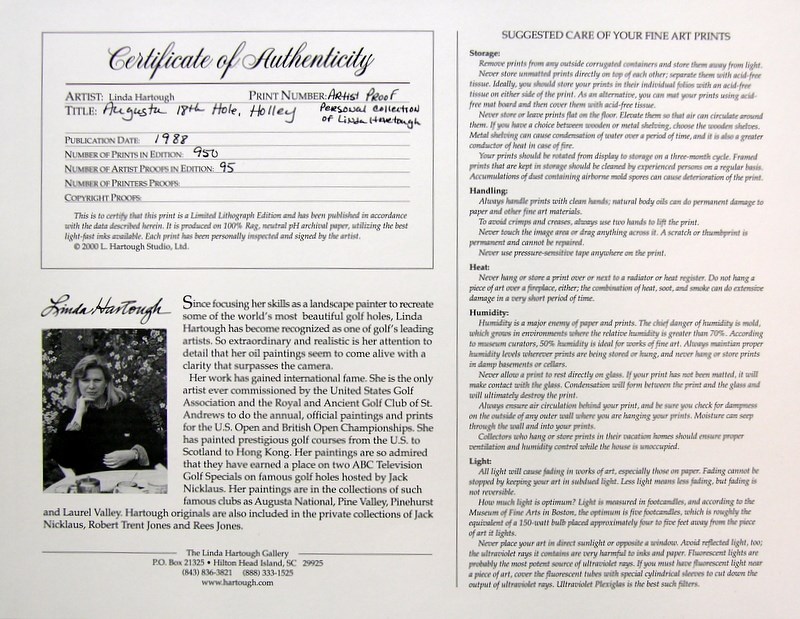 Certificate of Authenticity
ARTIST: Linda Hartough PRINT NUMBER: Artist Proof
TITLE: Augusta 18th Hole, Holley Personal Collection
of Linda Hartough
PUBLICATION DATE: 1988
NUMBER OF PRINTS IN EDITION: 950
NUMBER OF ARTIST PROOFS IN EDITION: 95
NUMBER OF PRINTERS PROOFS:
COPYRIGHT PROOFS:
This is to certify that this print is a Limited Lithograph Edition and has been published in accordance
with the data described herein. It is produced on 100% Rag, neutral pH archival paper, utilizing the best
light-fast inks available. Each print has been personally inspected and signed by the artist.
© 2000 L. Hartough Studio, Ltd.
Linda Hartough
Since focusing her skills as a landscape painter to recreate
some of the world's most beautiful golf holes, Linda
Hartough has become recognized as one of golf's leading
artists. So extraordinary and realistic is her attention to
detail that her oil paintings seem to come alive with a
clarity that surpasses the camera.
Her work has gained international fame. She is the only
artist ever commissioned by the United States Golf
Association and the Royal and Ancient Golf Club of St.
Andrews to do the annual, official paintings and prints
for the U.S. Open and British Open Championships. She
has painted prestigious golf courses from the U.S. to
Scotland to Hong Kong. Her paintings are so admired
that they have earned a place on two ABC Television
Golf Specials on famous golf holes hosted by Jack
Nicklaus. Her paintings are in the collections of such
famous clubs as Augusta National, Pine Valley, Pinehurst
and Laurel Valley. Hartough originals are also included in the private collections of Jack
Nicklaus, Robert Trent Jones and Rees Jones.
The Linda Hartough Gallery
P.O. Box 21325 • Hilton Head Island, SC 29925
(843) 836-3821 (888) 333-1525
www.hartough.com
SUGGESTED CARE OF YOUR FINE ART PRINTS
Storage:
Remove prints from any outside corrugated containers and store them away from light.
Never store unmatted prints directly on top of each other; separate them with acid-free
tissue. Ideally, you should store your prints in their individual folios with an acid-free
tissue on either side of the print. As an alternative, you can mat your prints using acid-
free mat board and then cover them with acid-free tissue.
Never store or leave prints flat on the floor. Elevate them so that air can circulate around
them. If you have a choice between wooden or metal shelving, choose the wooden shelves.
Metal shelving can cause condensation of water over a period of time, and it is also a greater
conductor of heat in case of fire.
Your prints should be rotated from display to storage on a three-month cycle. Framed
prints that are kept in storage should be cleaned by experienced persons on a regular basis.
Accumulations of dust containing airborne mold spores can cause deterioration of the print.
Handling:
Always handle prints with clean hands; natural body oils can do permanent damage to
paper and other fine art materials.
To avoid crimps and creases, always use two hands to lift the print.
Never touch the image area or drag anything across it. A scratch or thumbprint is
permanent and cannot be repaired.
Never use pressure-sensitive tape anywhere on the print.
Heat:
Never hang or store a print over or next to a radiator or heat register. Do not hang a
piece of art over a fireplace, either; the combination of heat, soot, and smoke can do extensive
damage in a very short period of time.
Humidity:
Humidity is a major enemy of paper and prints. The chief danger of humidity is mold,
which grows in environments where the relative humidity is greater than 70%. According
to museum curators, 50% humidity is ideal for works of fine art. Always maintain proper
humidity levels wherever prints are being stored or hung, and never hang or store prints
in damp basements or cellars.
Never allow a print to rest directly on glass. If your print has not been matted, it will
make contact with the glass. Condensation will form between the print and the glass and
will ultimately destroy the print.
Always ensure air circulation behind your print, and be sure you check for dampness
on the outside of any outer wall where you are hanging your prints. Moisture can seep
through the wall and into your prints.
Collectors who hang or store prints in their vacation homes should ensure proper
ventilation and humidity control while the house is unoccupied.
Light:
All light will cause fading in works of art, especially those on paper. Fading cannot be
stopped by keeping your art in subdued light. Less light means less fading, but fading is
not reversible.
How much light is optimum? Light is measured in footcandles, and according to the
Museum of Fine Arts in Boston, the optimum is five footcandles, which is roughly the
equivalent of a 150-watt bulb placed approximately four to five feet away from the piece
of art it lights.
Never place your art in direct sunlight or opposite a window. Avoid reflected light, too;
the ultraviolet rays it contains are very harmful to inks and paper. Fluorescent lights are
probably the most potent source of ultraviolet rays. If you must have fluorescent light near
a piece of art, cover the fluorescent tubes with special cylindrical sleeves to cut down the
output of ultraviolet rays. Ultraviolet Plexiglas is the best such filters.